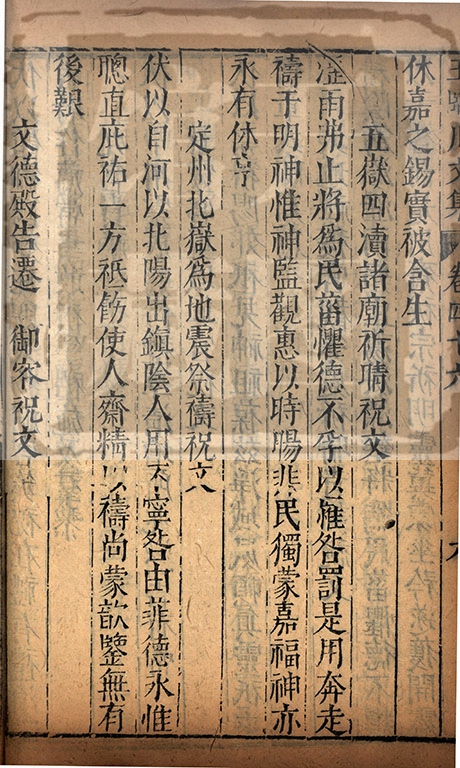 王臨川文集 卷四十六 九
休嘉之錫實被含生
五嶽四瀆諸廟祈晴祝文
淫雨弗止將為民菑懼德不孚以惟咎罰是用奔走
禱于明神惟神監觀惠以時暘非民獨蒙嘉福神亦
永有休享
定州北嶽為地震祭禱祝文
伏以自河以北陽出鎮陰人用不寧咎由菲德永惟
聰直庇祐一方祇飭使人齋精以禱尚蒙歆鑒無有
後艱
文德殿告遷 御容祝文